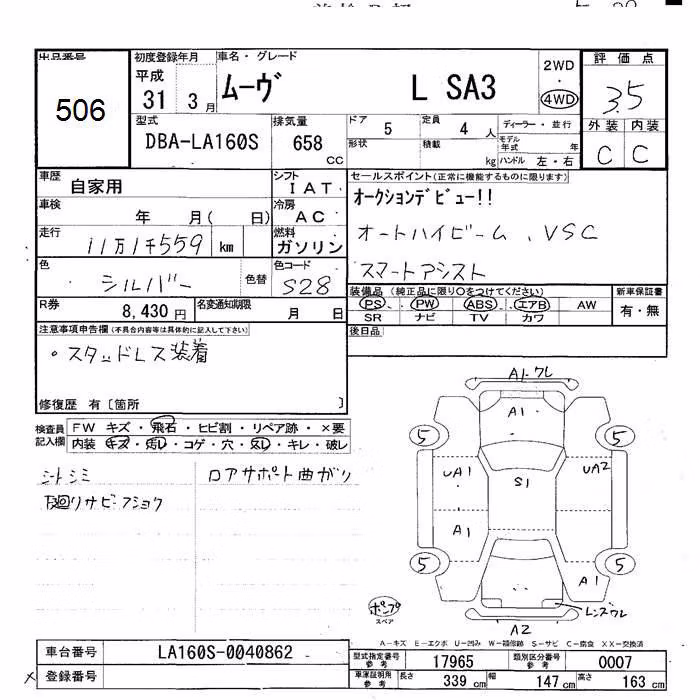 出品番号
506
初度登録年月
平成
31 3月
車名・グレード
ムーヴ L SA3
2WD
・
4WD
評価点
3.5
外装 内装
C C
型式
DBA-LA160S
排気量
658
CC
ドア 5
定員 4 人
形状
積載 kg
ディーラー・並行
モデル年式 年
ハンドル 左・右
車歴
自家用
シフト
IAT
車検
年 月( 日)
冷房
AC
走行
11万1千559 km
燃料
ガソリン
色
シルバー
色替
色コード
S28
R券
8,430円
名変通知期限
月 日
セールスポイント(正常に機能するものに限ります)
オークションデビュー!!
オートハイビーム、VSC
スマートアシスト
装備品(純正品に限り○をつけてください)
PS PW ABS エアB AW
SR ナビ TV カワ
新車保証書
有・無
後日品
注意事項申告欄(不具合内容等は具体的に記入して下さい)
・スタッドレス装着
修復歴 有〔箇所 〕
検査員
記入欄
FW キズ・飛石・ヒビ割・リペア跡・×要
内装 キズ・汚レ・コゲ・穴・スレ・キレ・破レ
シートシミ
下廻りサビ・フショク
ロアサポート曲ガリ
A1・ワレ
A1
5 5
UA1 S1 UA2
A1
5 5
A1
レンズワレ
A2
ポンプ
スペア
A-キズ E-エクボ U-凹み W-補修跡 S-サビ C-腐食 XX-交換済
車台番号
LA160S-0040862
登録番号
×
型式指定番号
参考
17965
類別区分番号
参考
0007
車庫証明用
参考
長さ 339 cm
幅 147 cm
高さ 163 cm